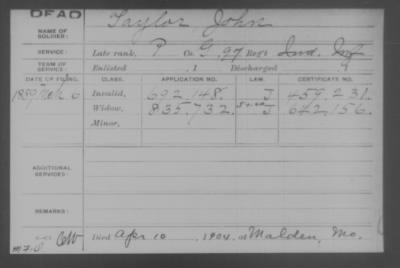 DEAD
Taylor John
NAME OF SOLDIER:
SERVICE: Late rank, P Co. G, 27 Reg't Ind. Inf
TERM OF SERVICE: Enlisted , 1 Discharged , 1
DATE OF FILING. CLASS. APPLICATION NO. LAW. CERTIFICATE NO.
1889 Feb. 6 Invalid, 692.148. J 459.231.
Widow, 835,732. J 642,156.
Minor,
ADDITIONAL SERVICES:
REMARKS:
Died Apr. 10, 1904, at Malden, Mo.